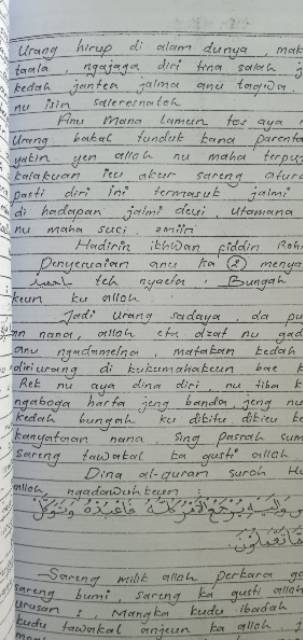 Urang hirup di alam dunya, mak
taala, ngajaga diri tina salah j
kedah janten jalma anu taqwa.
nu isin saleresnateh
Anu mana lamun tos aya r
Urang bakal tunduk kana parenta
yakin yen alloh nu maha terpu
kalakuan ieu akur sareng atura
pasti diri ini termasuk jalmi
di hadapan jalmi deui, utamana
nu maha suci. amiin
Hadirin ikhwan fiddin Roh
Penyesuaian anu ka 2 menya
teh nyaeta, Bungah
keun ku alloh
Jadi urang sadaya, da pu
an nana, alloh eta dzat nu gad
anu ngadamelna, matakan kedah
diri urang di kukumahakeun bae k
Rek nu aya dina diri, nu tiba k
ngaboga harta jeng banda, jeng nu
kedah bungah ku dikitu dikieu ke
kanyataan nana, sing pasrah sum
sareng tawakal ka gusti alloh
Dina al-quran suroh Hu
alloh ngadawuhkeun :
وَإِلَيْهِ يُرْجَعُ الْأَمْرُ كُلُّهُ فَاعْبُدْهُ وَتَوَكَّلْ
تَعْمَلُوْنَ
Sareng milik alloh perkara go
sareng bumi, sareng ka gusti alloh
urusan : Mangka kudu ibadah
kudu tawakal anjeun ka alloh,